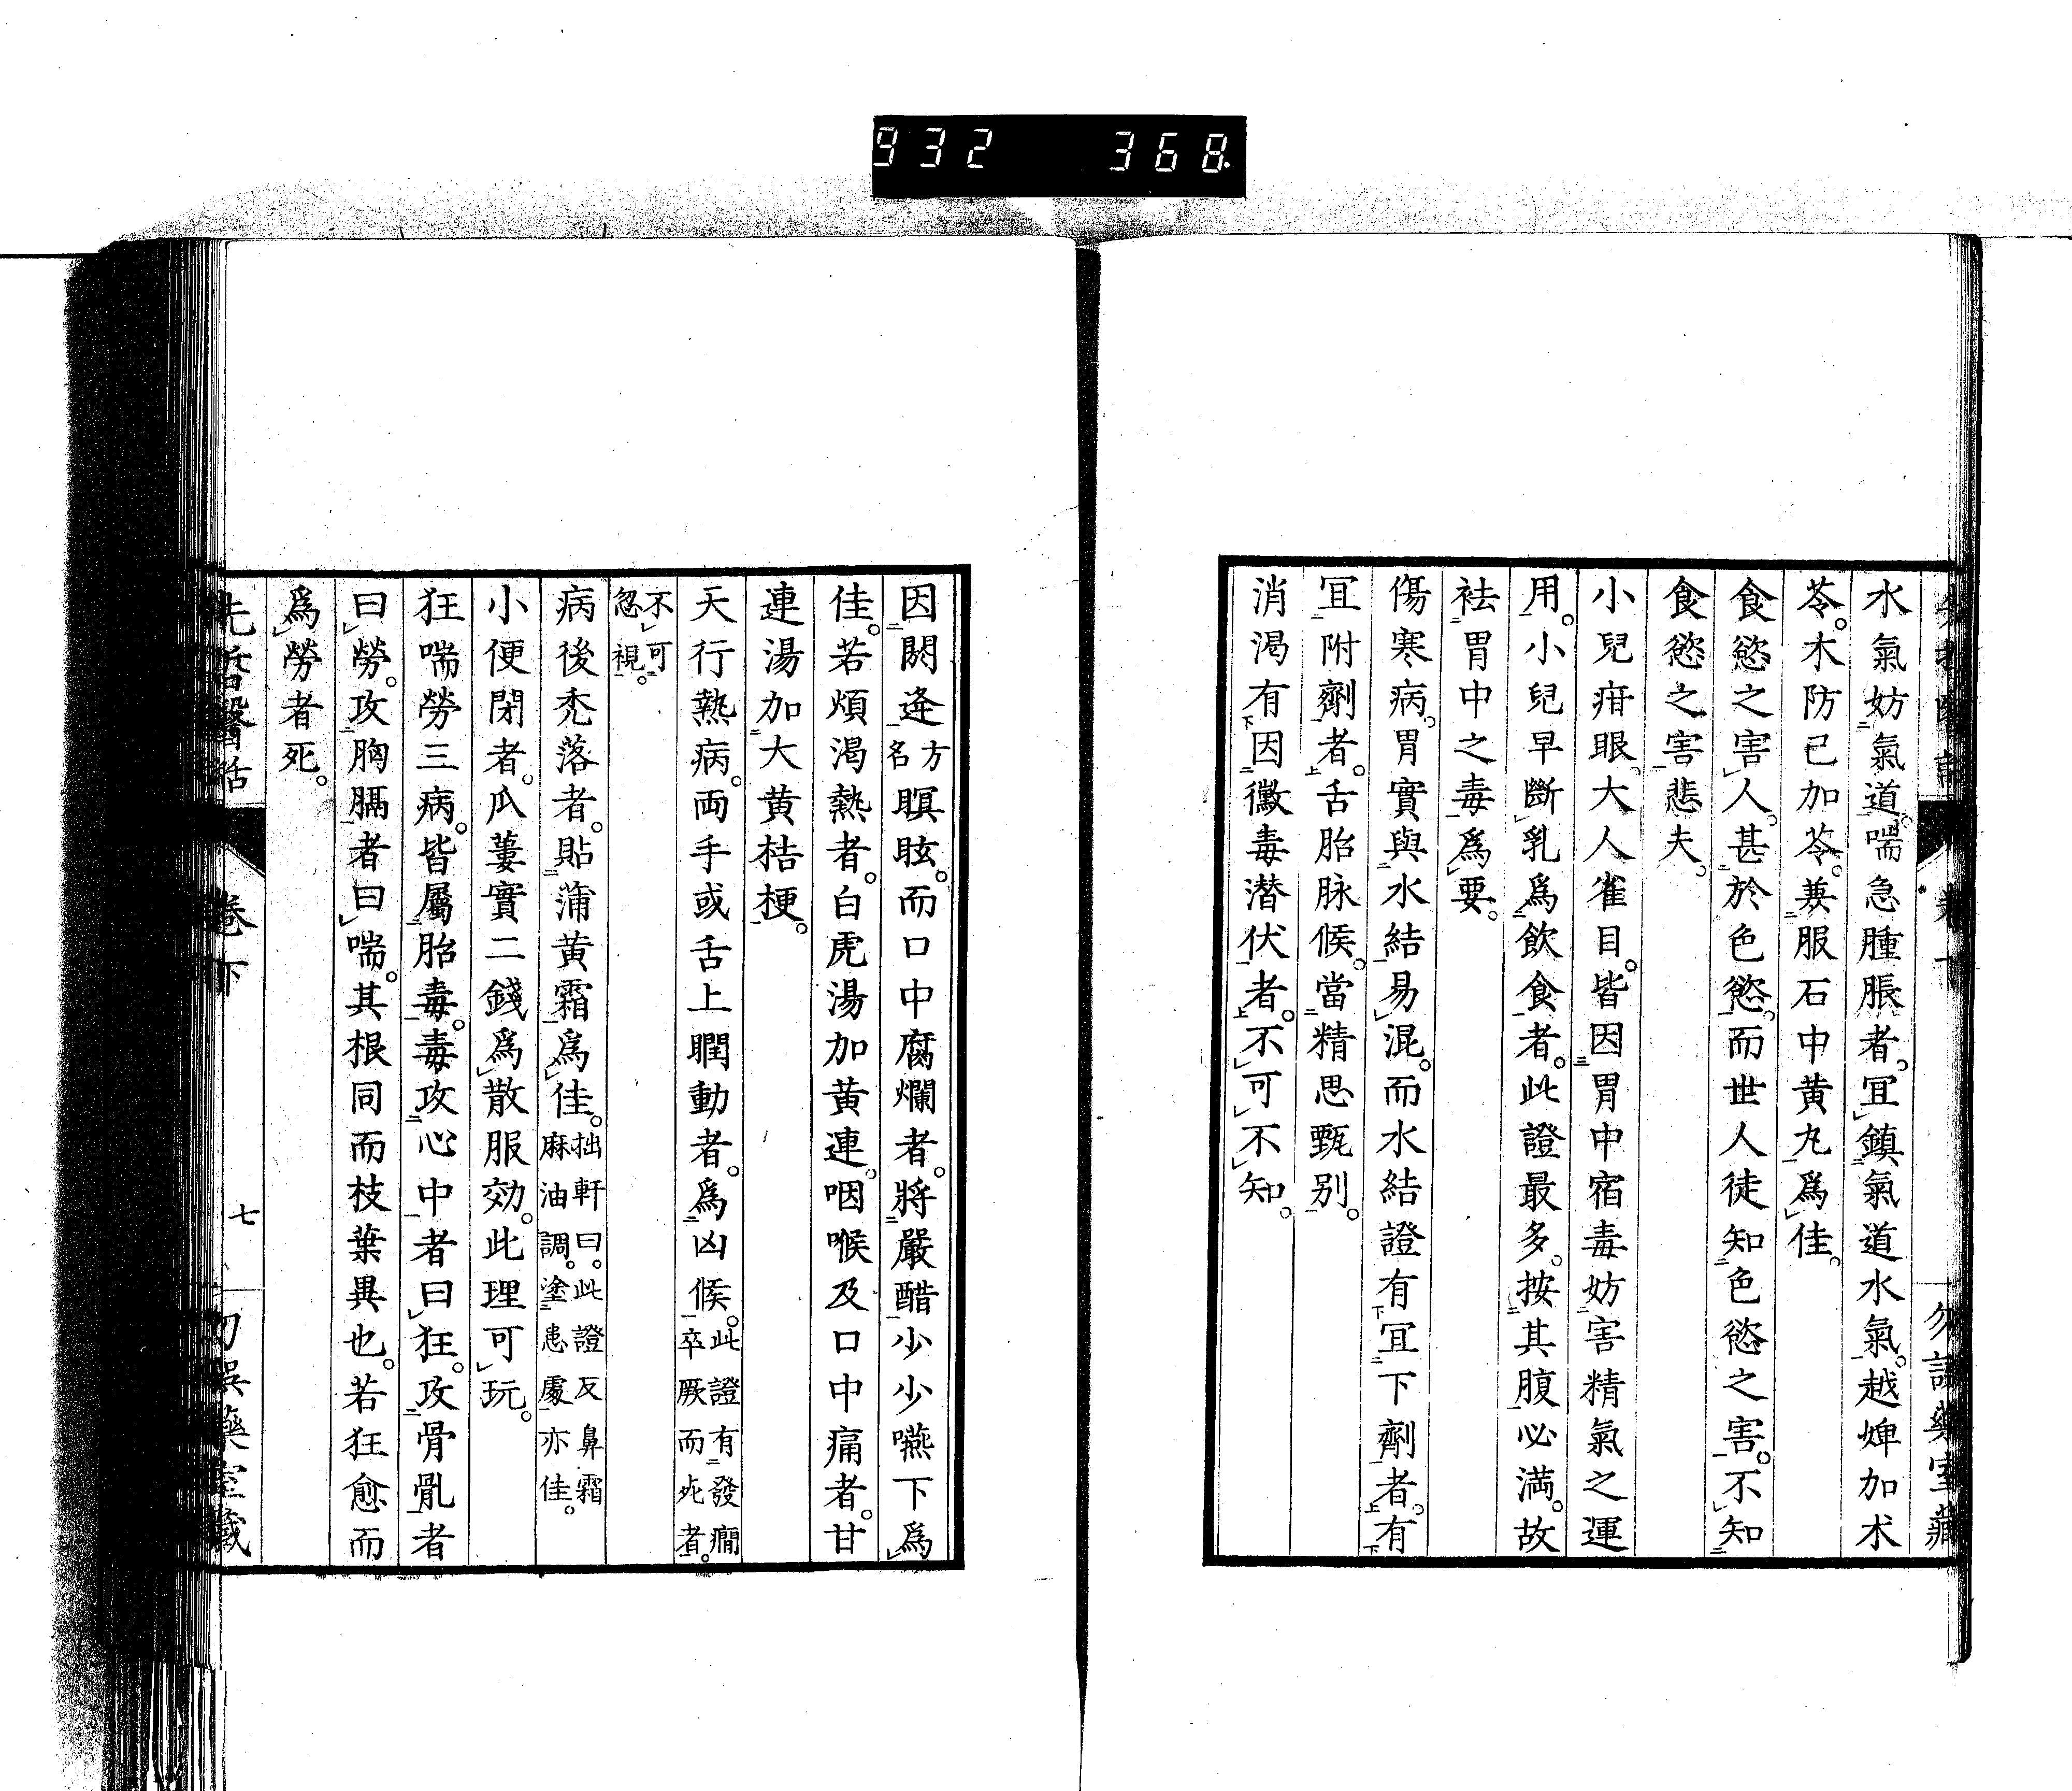 932 368
水氣妨氣道。喘急腫脹者。冝鎮氣道水氣。越婢加朮
苓。木防已加苓。兼服石中黄丸爲佳。
食慾之害人。甚於色慾。而世人徒知色慾之害。不知
食慾之害悲夫。
小兒疳眼。大人雀目。皆因胃中宿毒妨害精氣之運
用。小兒早斷乳爲飲食者。此證最多。按其腹必満。故
袪胃中之毒爲要。
傷寒病。胃實與水結易混。而水結證有冝下劑者。有
冝附劑者。舌胎脉候。當精思甄别。
消渇有因黴毒潜伏者。不可不知。
勿誤藥室藏
因閼逢方名瞑眩。而口中腐爛者。將嚴醋少少嚥下爲
佳。若煩渇熱者。白虎湯加黄連。咽喉及口中痛者。甘
連湯加大黄桔梗。
天行熱病。両手或舌上瞤動者。爲凶候。此證有發癇卒厥而死者。
不可忽視。
病後禿落者。貼蒲黄霜爲佳。拙軒曰。此證反鼻霜麻油調。塗患處亦佳。
小便閉者。瓜蔞實二錢爲散服効。此理可玩。
狂喘勞三病。皆屬胎毒。毒攻心中者曰狂。攻骨骪者
曰勞。攻胸膈者曰喘。其根同而枝葉異也。若狂愈而
爲勞者死。
先哲醫話 卷下 七 勿誤藥室藏